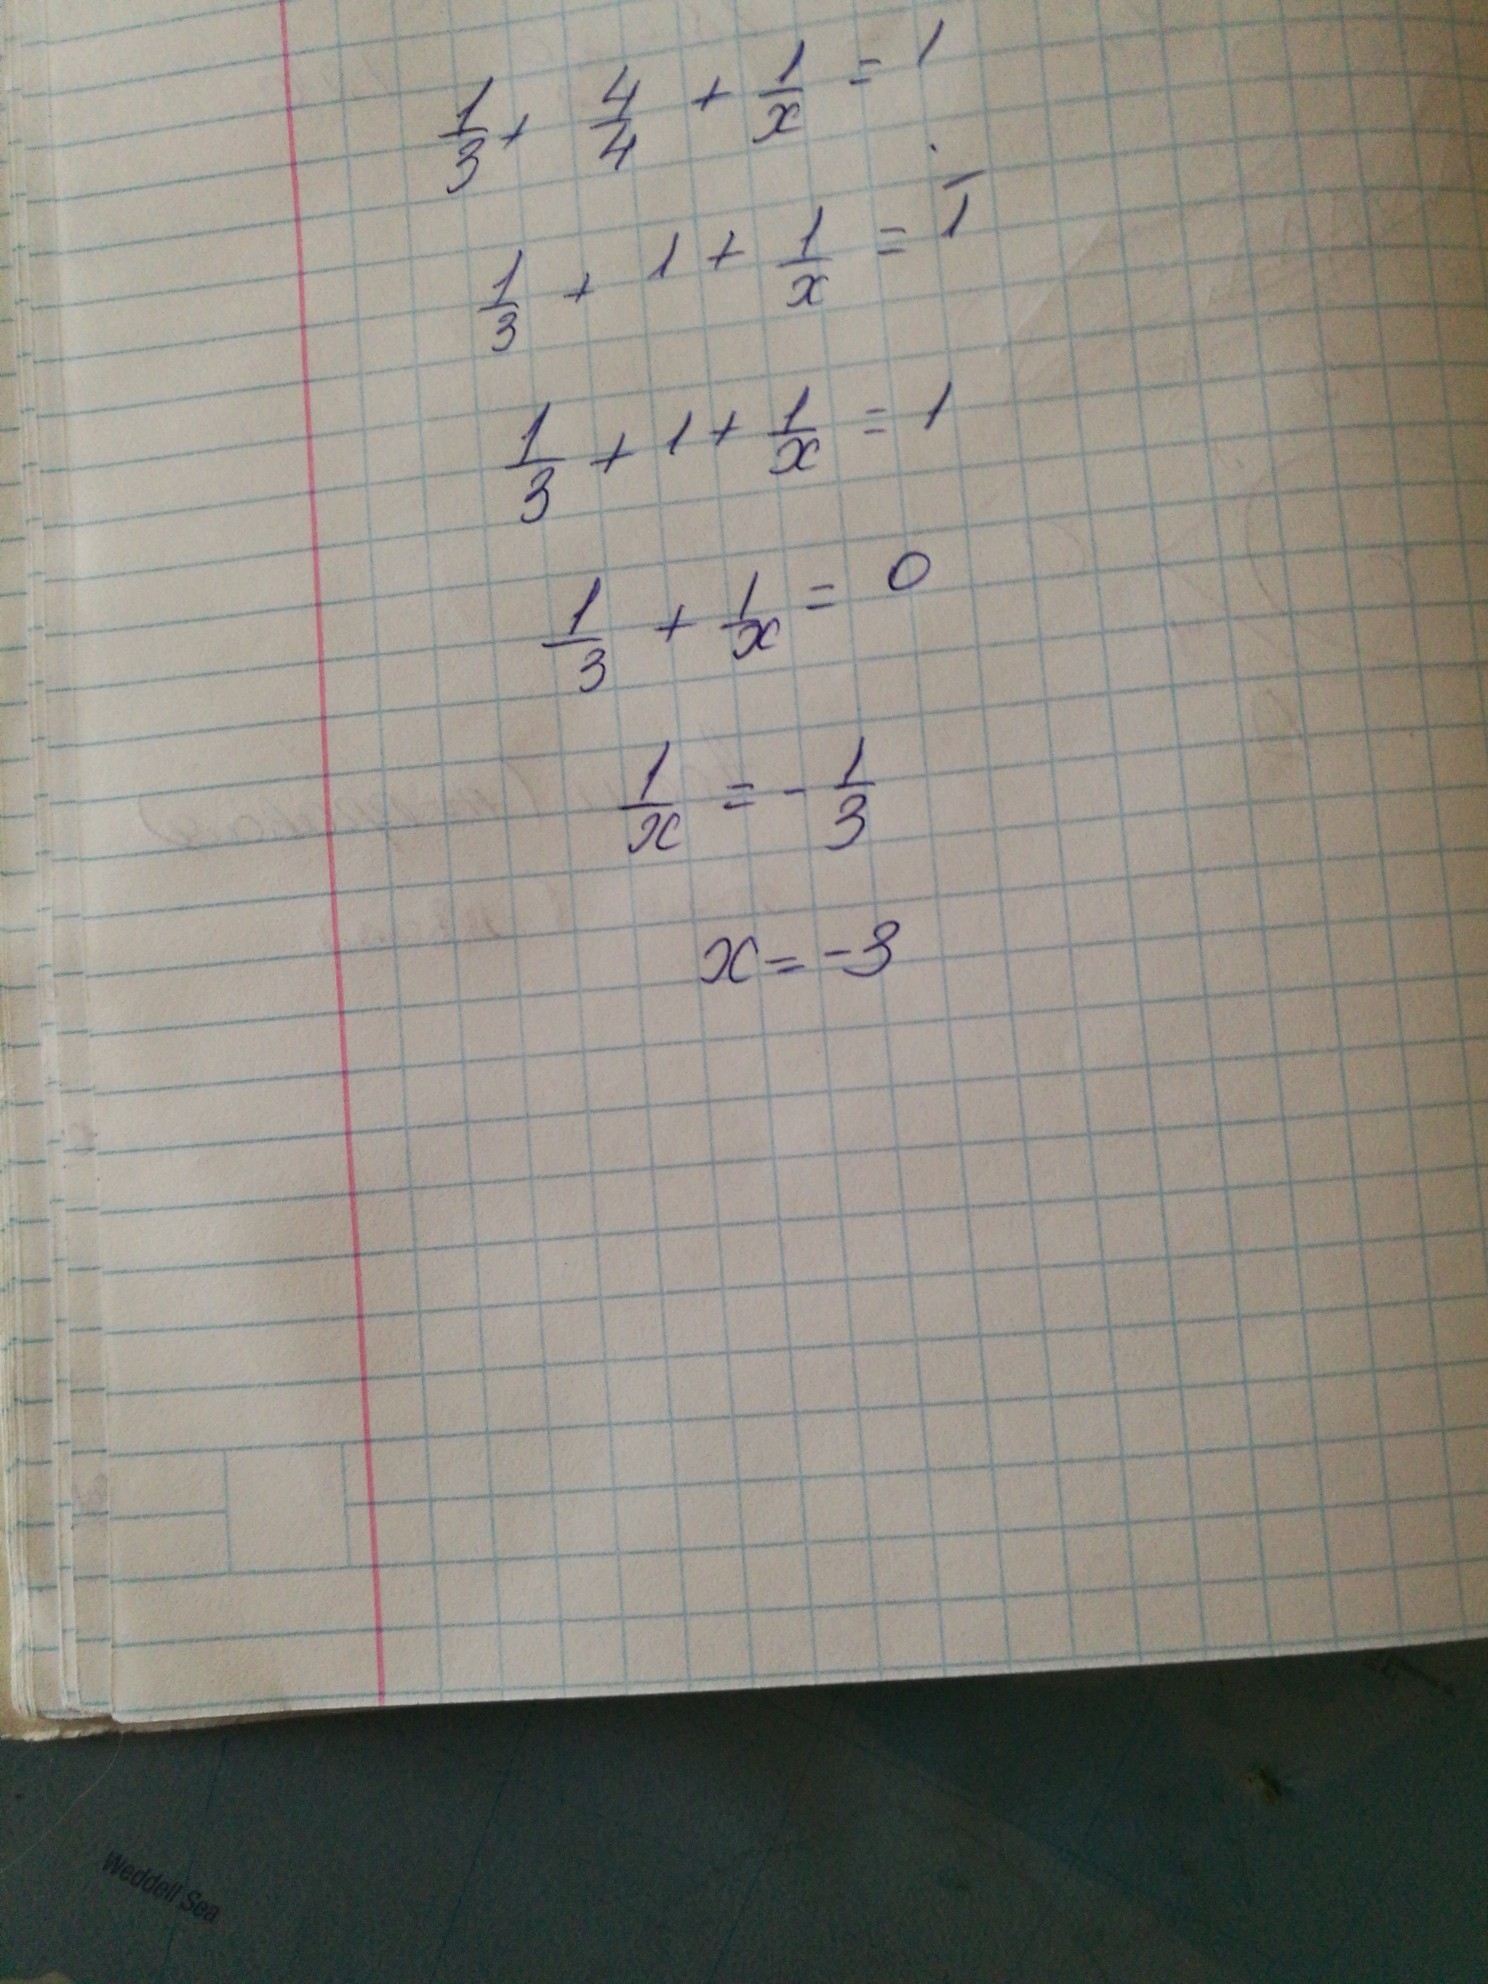 1/3 + 4/4 + 1/x = 1
1/3 + 1 + 1/x = 1
1/3 + 1 + 1/x = 1
1/3 + 1/x = 0
1/x = - 1/3
x = -3
Weddell Sea